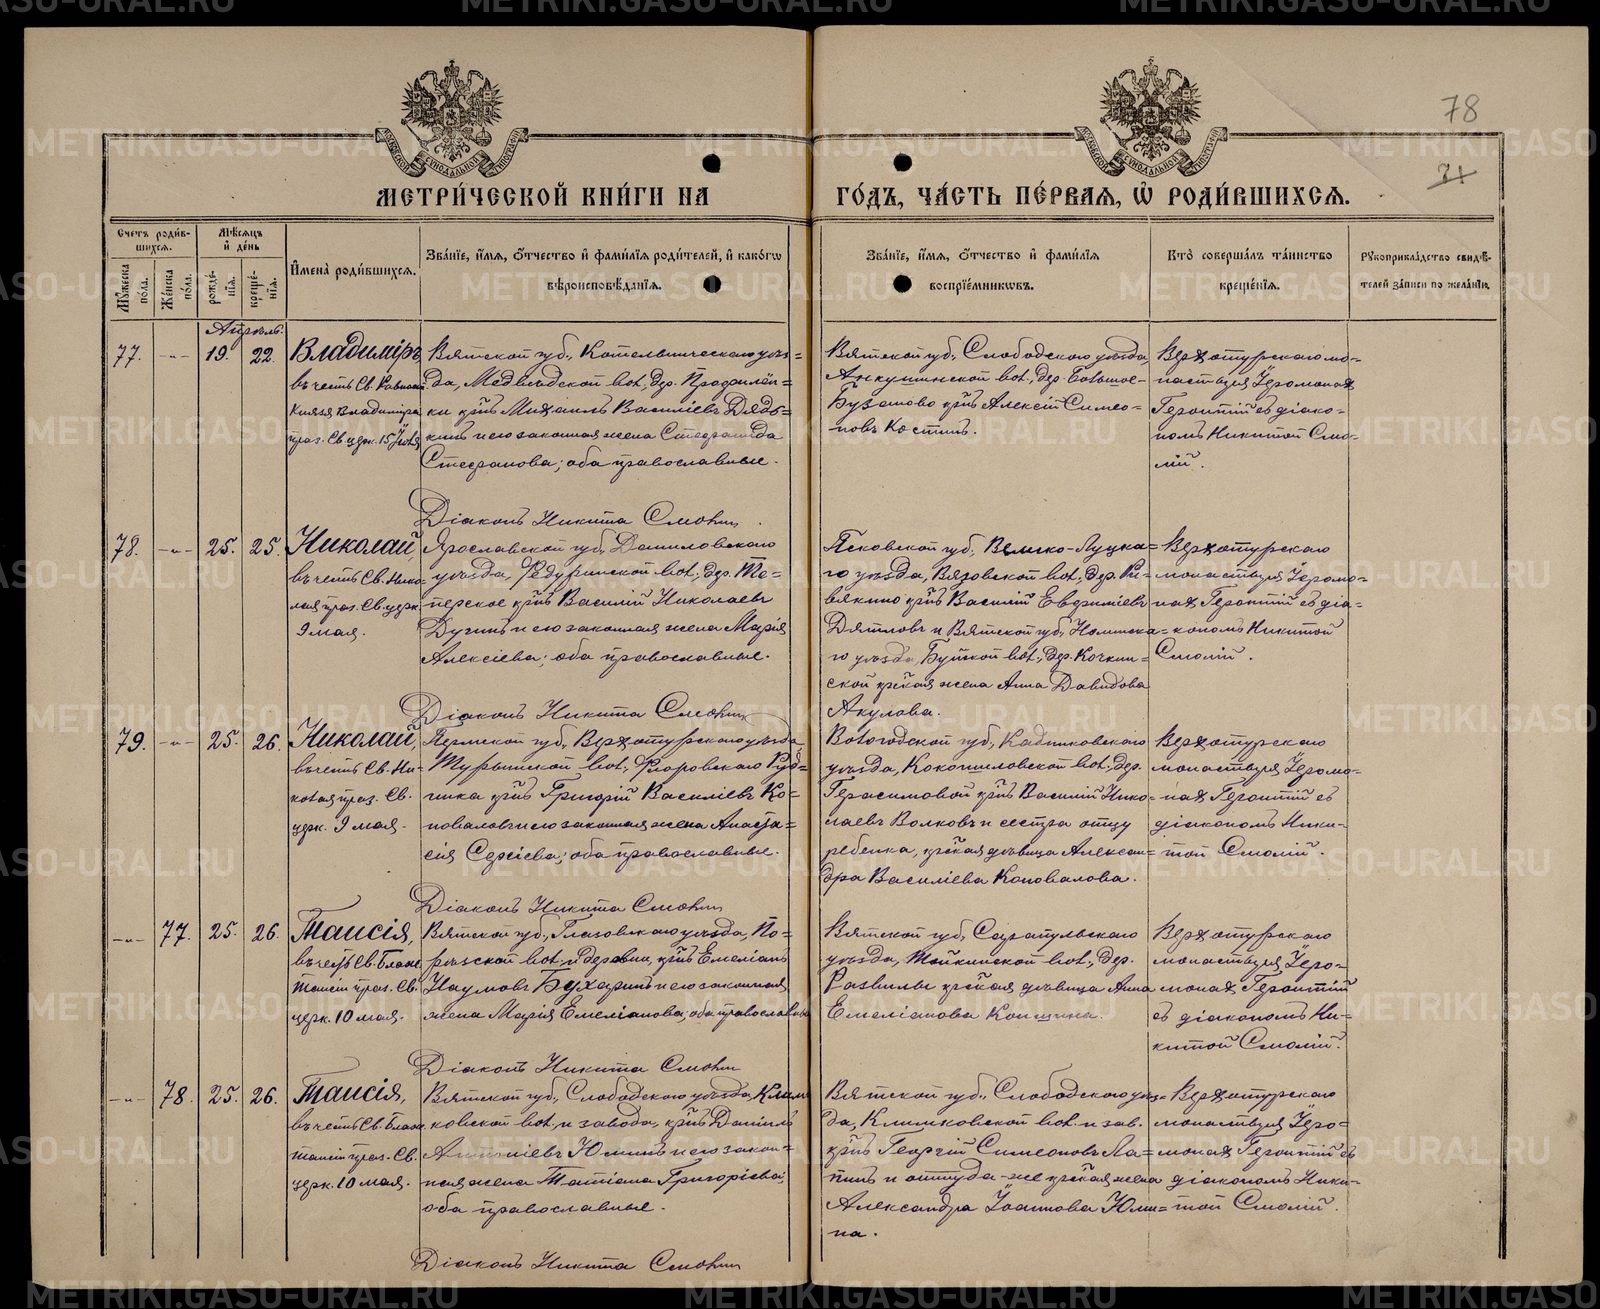 78
71
МЕТРИ́ЧЕСКОЙ КНИ́ГИ НА ГО́ДЪ, ЧА́СТЬ ПЕ́РВАЯ, Ѡ РОДИ́ВШИХСЯ.
Счетъ роди́в-
шихся.
Мѣ́сяцъ
и де́нь
Му́жеска
по́ла.
Же́нска
по́ла.
рожде́-
нія.
креще́-
нія.
И҆мена̀ роди́вшихся.
Зва́ніе, и҆́мя, ѻ҆́тчество и҆ фами́лія роди́телей, и҆ како́гѡ
вѣроисповѣ́данія.
Зва́ніе, и҆́мя, ѻ҆́тчество и҆ фами́лія
воспріе́мникѡвъ.
Кто̀ соверша́лъ та́инство
креще́нія.
Рꙋкоприкла́дство свидѣ́-
телей за́писи по жела́нію.
Апрѣль.
77. -"- 19. 22. Владиміръ
въ честь Св. Равноап.
Князя Владиміра
праз. Св. церк. 15 Іюля
Вятской губ., Котельническаго уѣз=
да, Медвѣдской вол., дер.
ки кр҃нъ Михаилъ Василіевъ Дядь=
кинъ и его законная жена Стефанида
Стефанова; оба православные.
Діаконъ Никита Смолин
Вятской губ., Слободскаго уѣзда,
вол., дер. Большое-
Бузаново кр҃нъ Алексій Симео-
новъ Костинъ.
Верхотурскаго мо-
настыря Іеромонах
Геронтій съ діако-
номъ Никитой Смо-
лій.
78. -"- 25. 25. Николай,
въ честь Св. Нико-
лая праз. Св. церк.
9 мая.
Ярославской губ., Даниловскаго
уѣзда, Федуринской вол., дер. Те-
перское кр҃нъ Василій Николаевъ
и его законная жена Марія
Алексіева; оба православные.
Діаконъ Никита Смолин
Псковской губ., Велико-Луцка=
го уѣзда, Вязовской вол., дер. Ри-
вякино кр҃нъ Василій Евфиміевъ
Дятловъ и Вятской губ., Нолинска=
го уѣзда, Буйской вол., дер. Кочкин=
ской кр҃ская жена Анна Давидова
Акулова.
Верхотурскаго
монастыря Іеромо-
нах Геронтій съ діа-
кономъ Никитой
Смолій.
79. -"- 25. 26. Николай,
въ честь Св. Ни-
колая праз. Св.
церк. 9 мая.
Пермской губ., Верхотурскаго уѣзда
Турьинской вол., Фроловскаго Руд=
ника кр҃нъ Григорій Василіевъ Ко=
новаловъ и его законная жена Анаста=
сія Сергіева; оба православные.
Діаконъ Никита Смолин
Вологодской губ., Кадниковскаго
уѣзда, Кокошиловской вол., дер.
Герасимовой кр҃нъ Василій Нико=
лаевъ Волковъ и сестра отцу
ребенка, кр҃ская дѣвица Алексан=
дра Василіева Коновалова.
Верхотурскаго
монастыря Іеромо-
нах Геронтій съ
діакономъ Ники-
той Смолій.
-"- 77. 25. 26. Таисія,
въ честь Св. Блаж.
Таисіи праз. Св.
церк. 10 мая.
Вятской губ., Глазовскаго уѣзда, По-
рѣзской вол. и деревни, кр҃нъ Емеліанъ
Наумовъ Бухаринъ и его законная
жена Марія Емеліанова; оба православные
Діаконъ Никита Смолин
Вятской губ., Сарапульскаго
уѣзда, вол., дер.
Развилы кр҃ская дѣвица Анна
Емеліанова
Верхотурскаго
монастыря Іеро-
монах Геронтій
съ діакономъ Ни-
китой Смолій.
-"- 78. 25. 26. Таисія,
въ честь Св. Блаж.
Таисіи праз. Св.
церк. 10 мая.
Вятской губ., Слободскаго уѣзда, Клим
ковской вол. и завода, кр҃нъ Даніилъ
Антоніевъ Юминъ и его закон=
ная жена Татіана Григоріева;
оба православные.
Діаконъ Никита Смолин
Вятской губ., Слободскаго уѣз=
да, Климковской вол. и зав.
кр҃нъ Георгій Симеоновъ Ла=
пинъ и оттуда-же кр҃ская жена
Александра Іоаннова Юми=
на.
Верхотурскаго
монастыря Іеро=
монах Геронтій съ
діакономъ Ники-
той Смолій.
METRIKI.GASO-URAL.RU